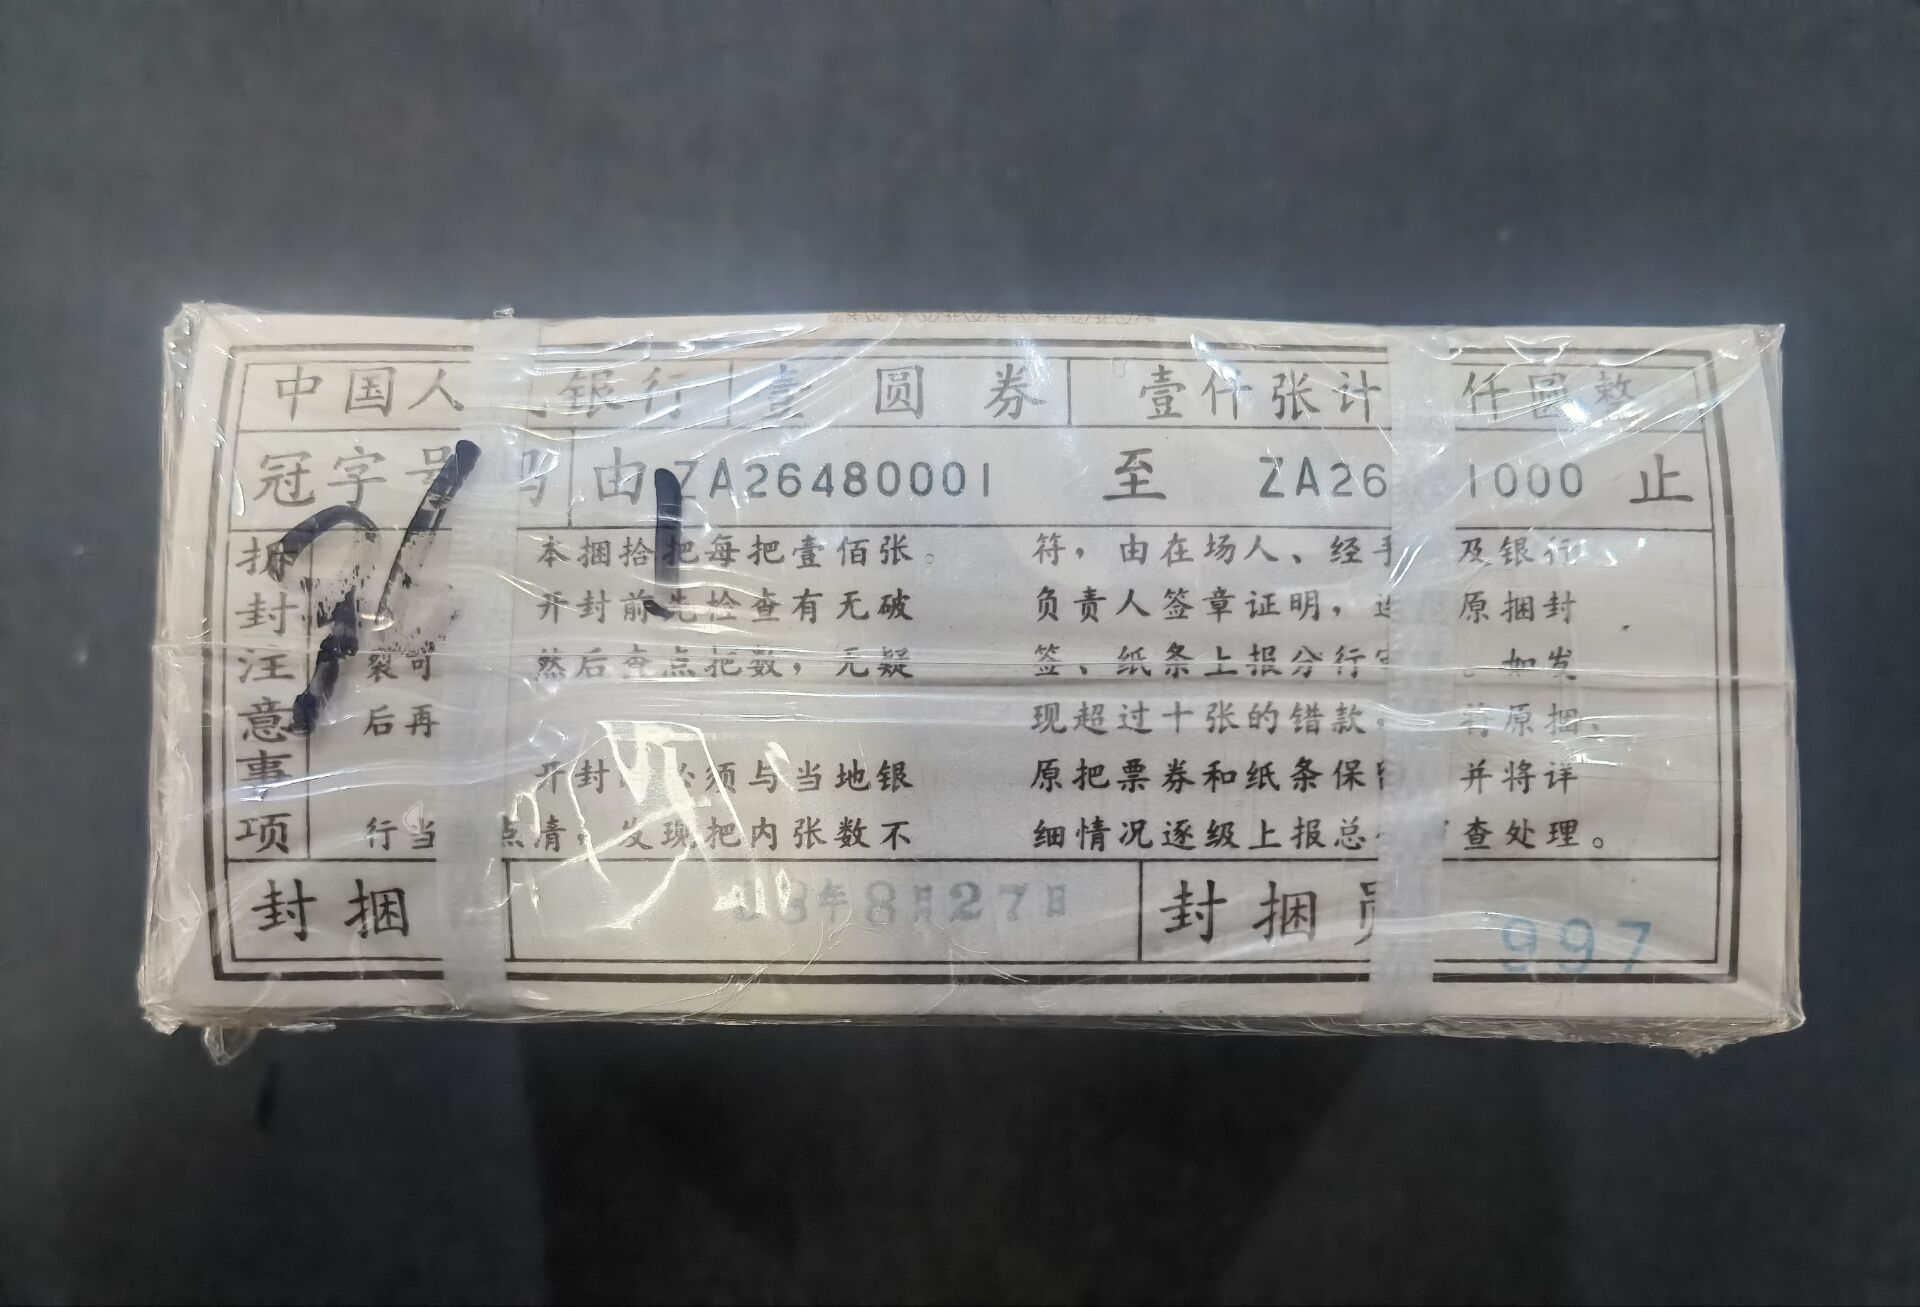 中国人 银行 壹圆券 壹仟张计 仟圆整
冠字号码 由 ZA26480001 至 ZA26 1000 止
拆封注意事项
本捆拾把每把壹佰张。
开封前先检查有无破
裂可 然后查点把数，无疑
后再
开封 必须与当地银
行当 点清，发现把内张数不
符，由在场人、经手 及银行
负责人签章证明，连 原捆封
签、纸条上报分行 。如发
现超过十张的错款， 将原捆、
原把票券和纸条保 并将详
细情况逐级上报总 查处理。
封捆 8年8月27日 封捆员 997